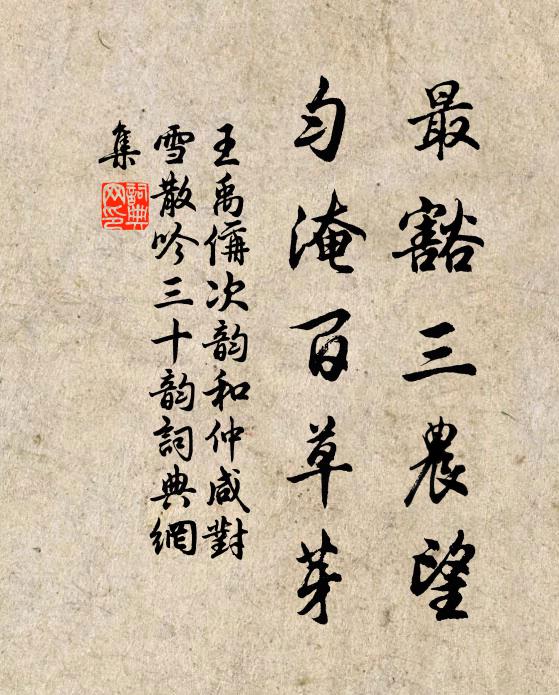 最豁三農望
勻淹百草芽
王禹偁次韵和仲咸對
雪散吟三十韵詞典網
集
詞典網印